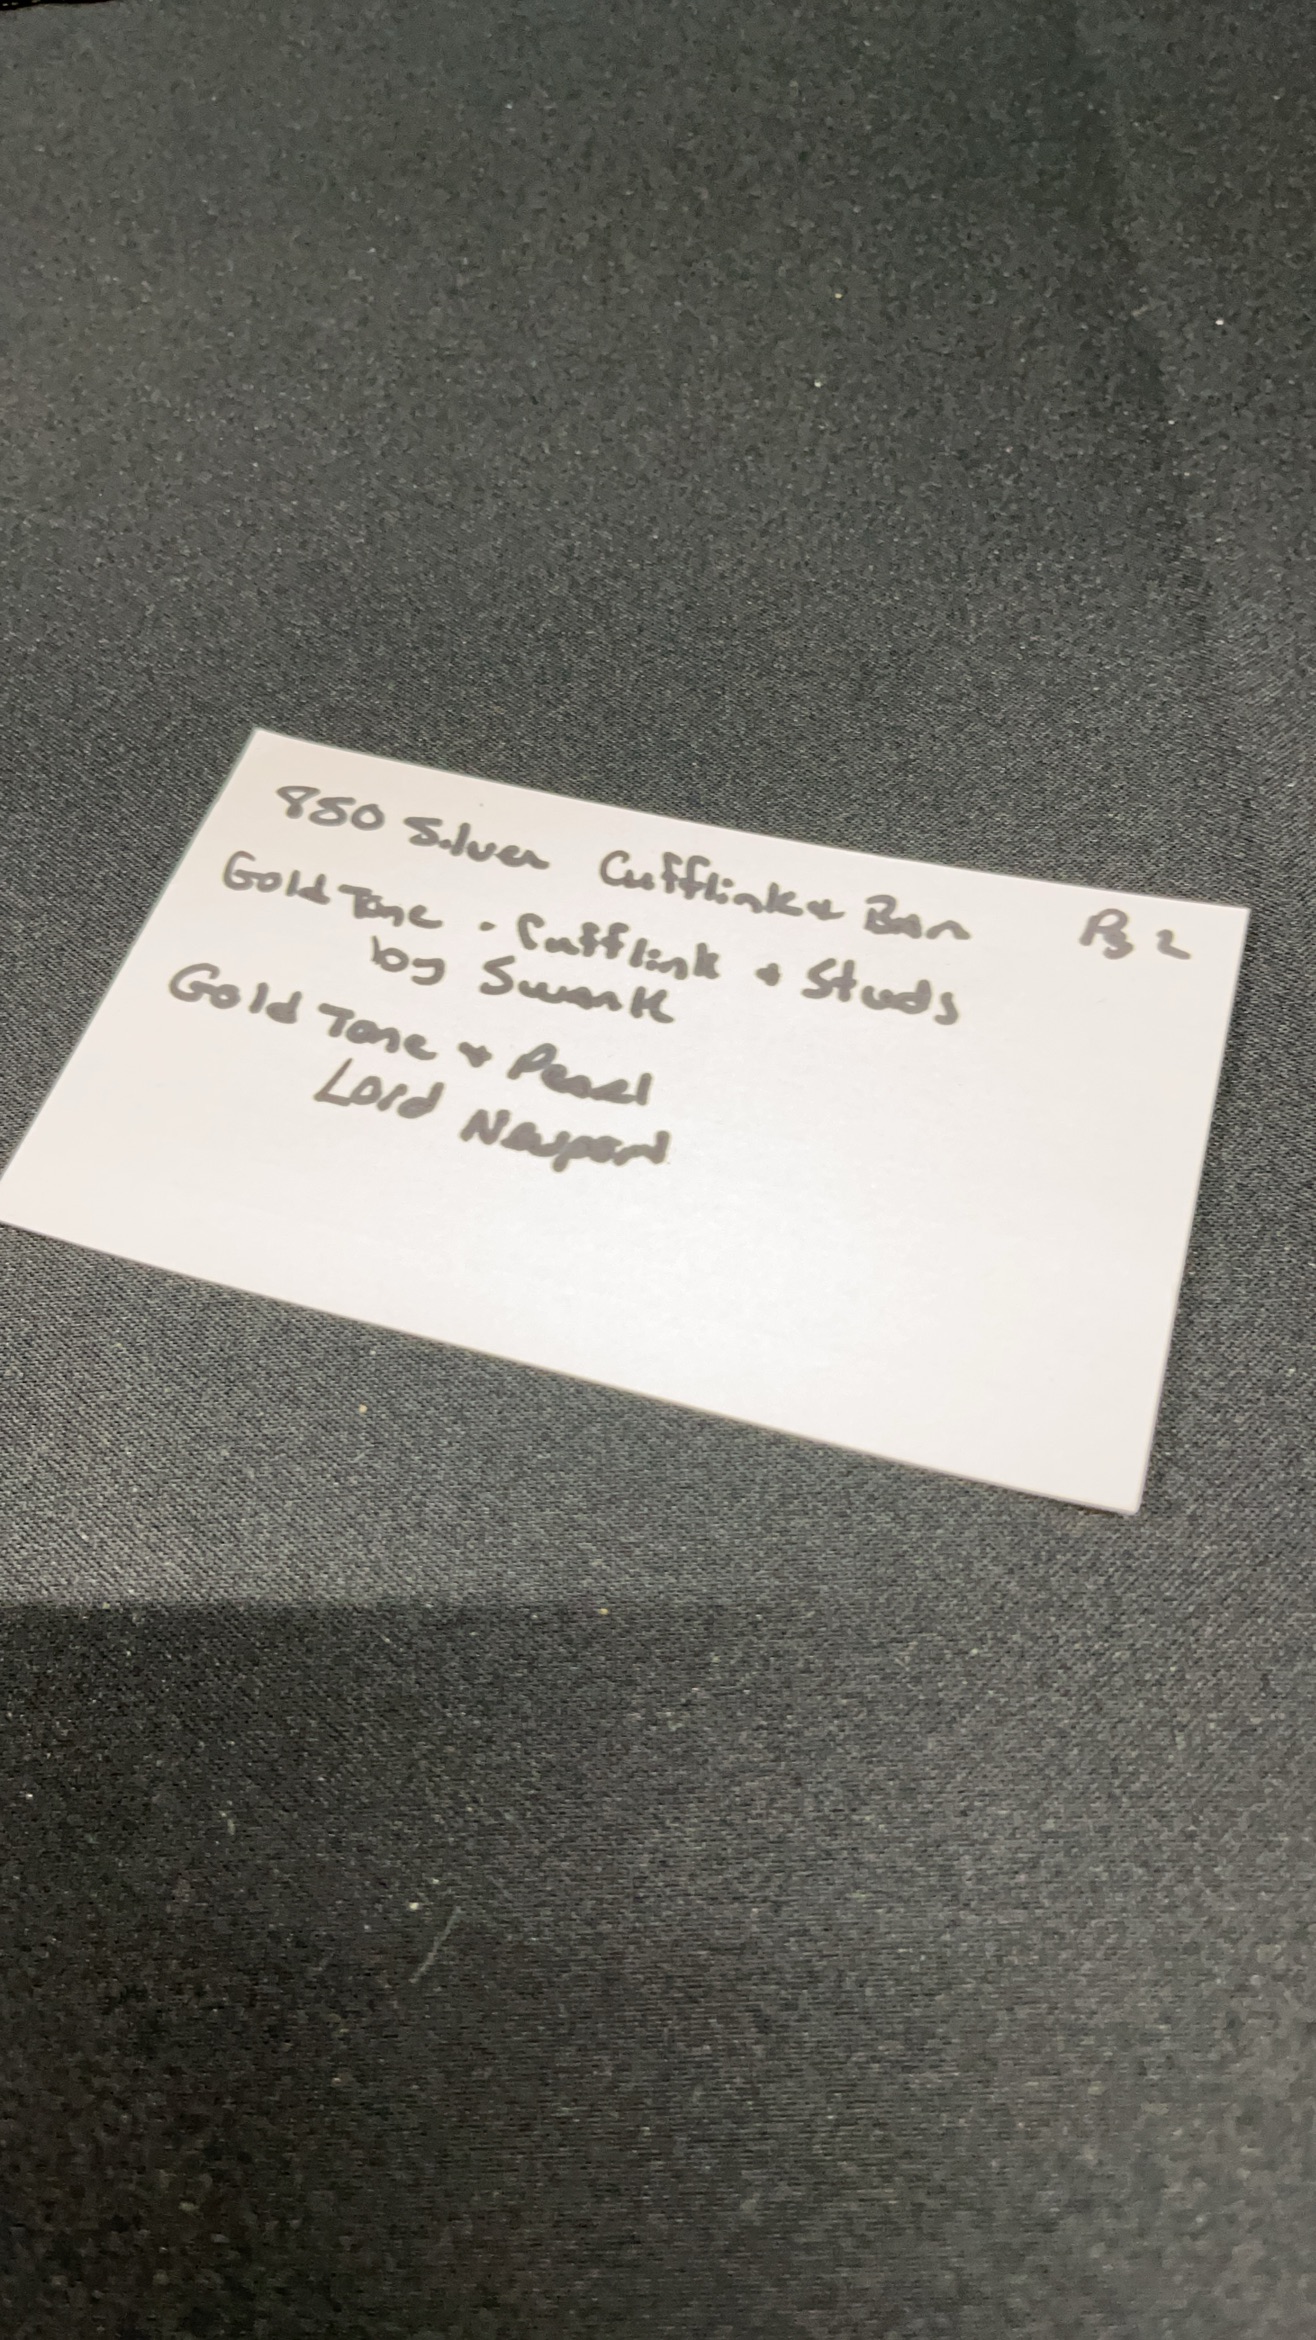 850 Silver Cufflink & Bar Pg 2
Gold Tone - Cufflink & Studs
by Swank
Gold Tone & Pearl
Lord Newport